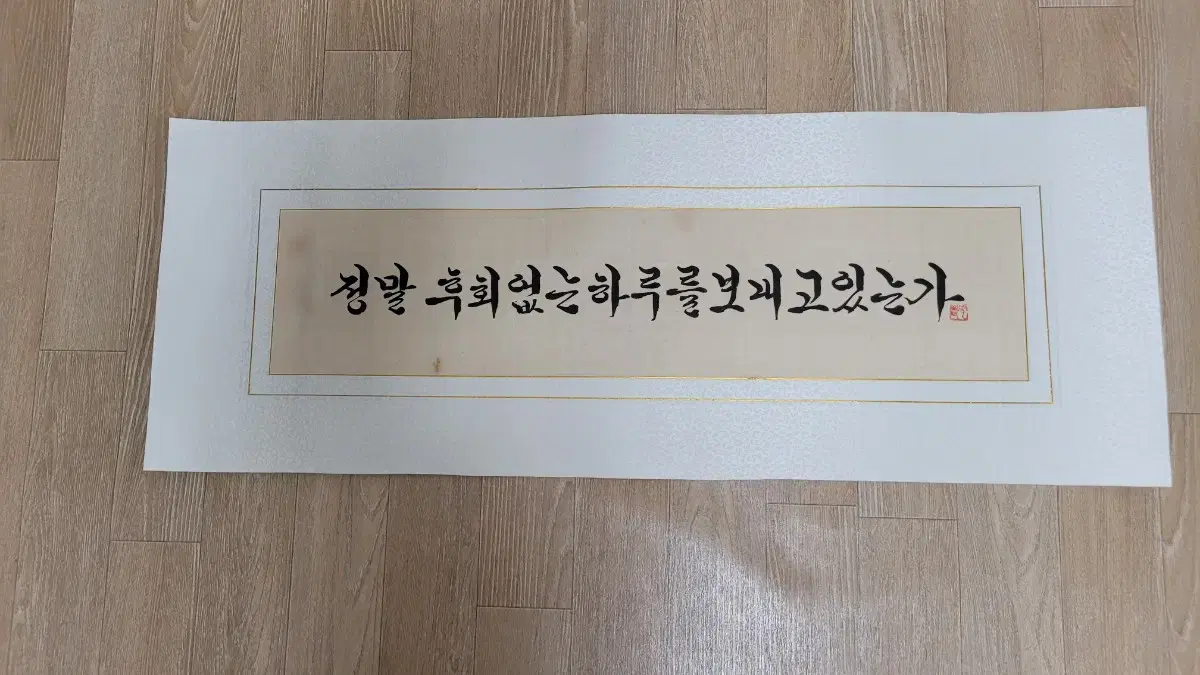 정말 후회없는하루를보내고있는가